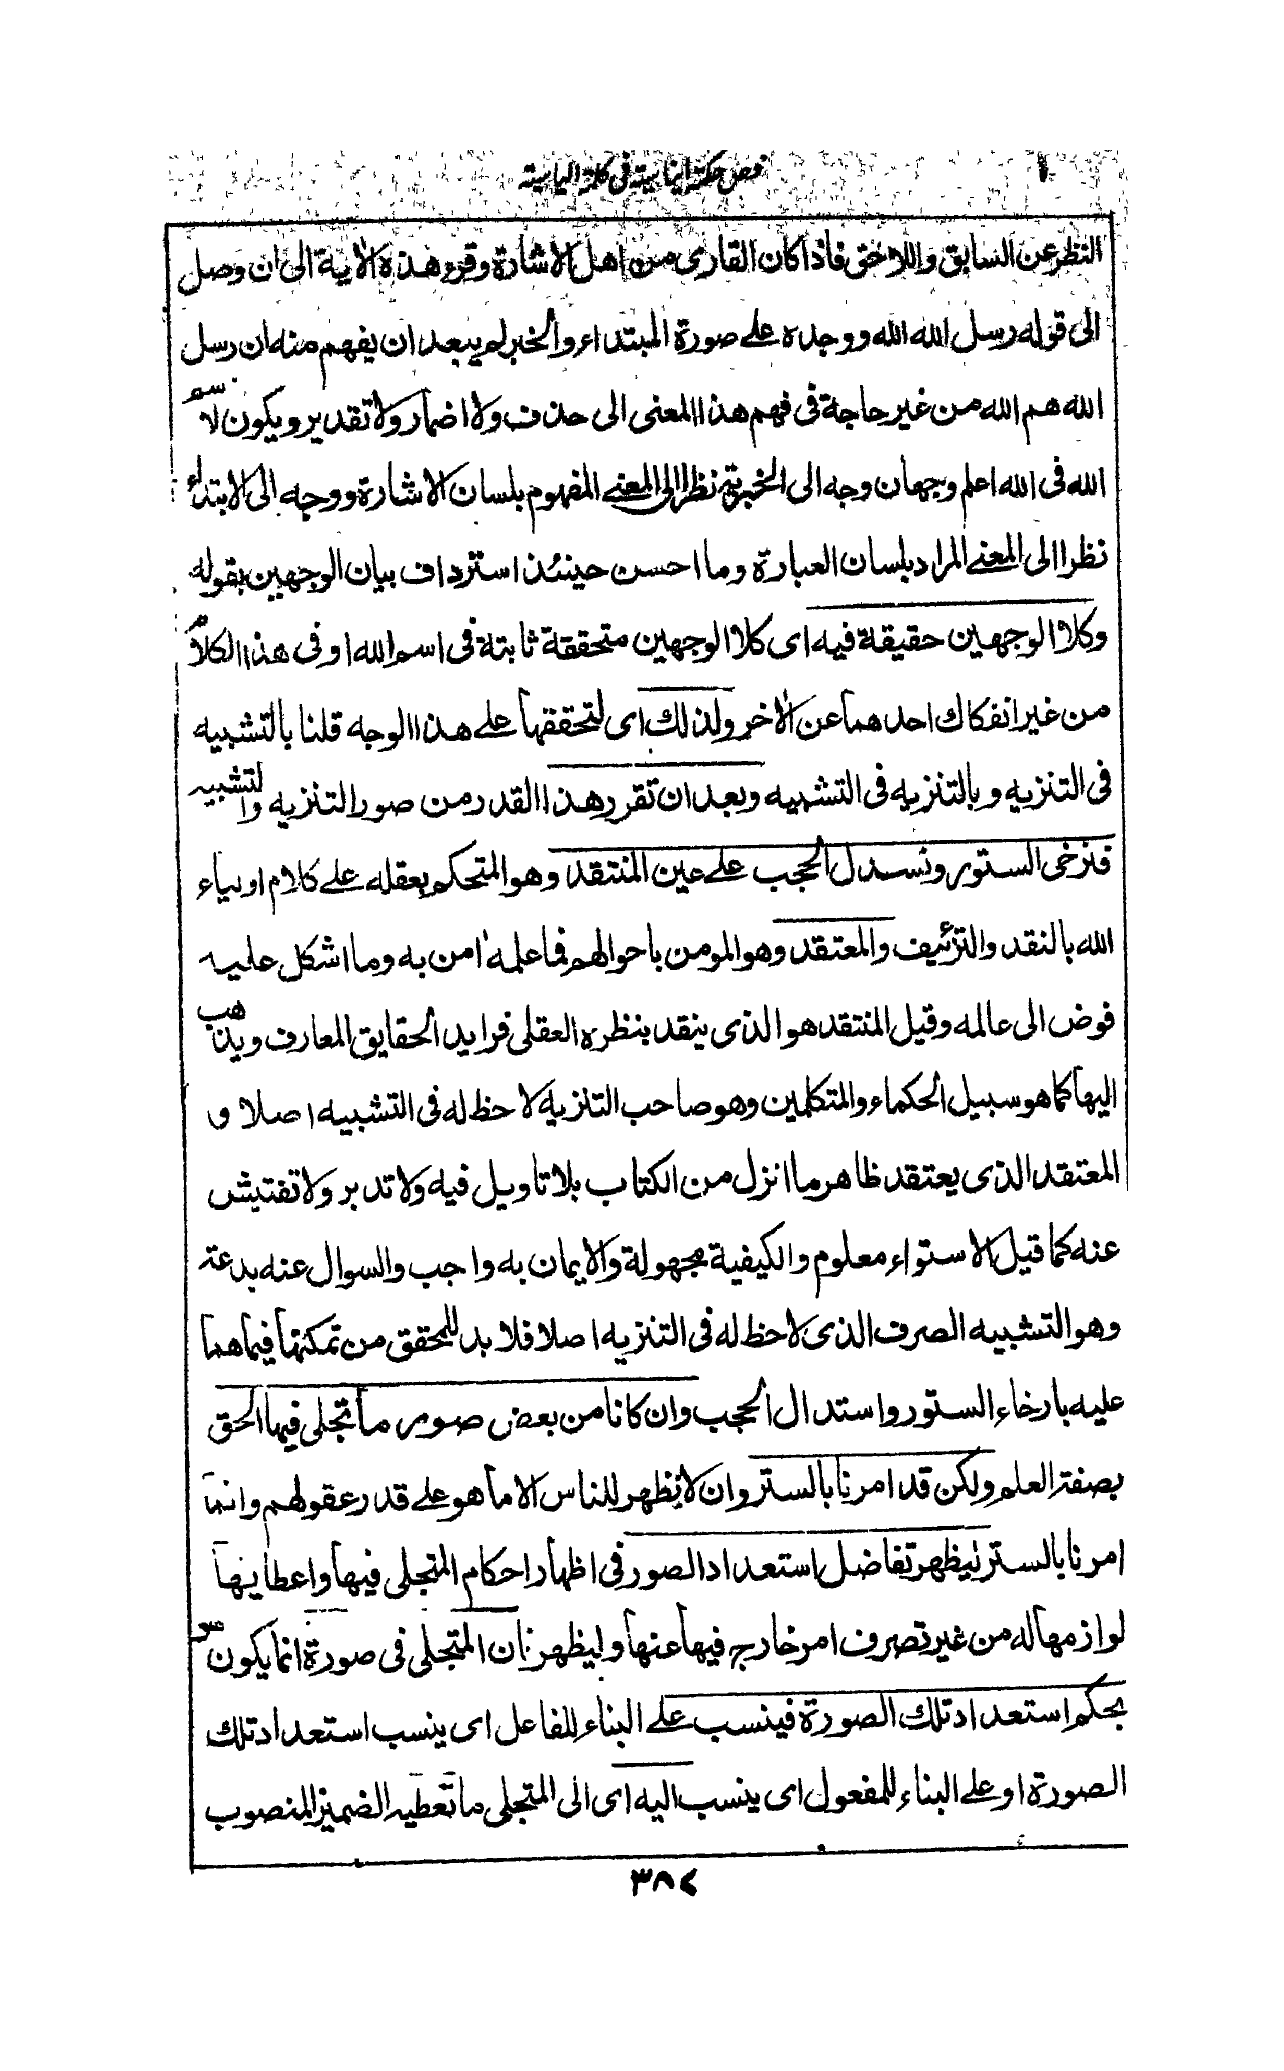 فص حكمة ايناسية فى كلمة الياسية
النظر عن السابق واللاحق فاذا كان القارى من اهل الاشارة وقرء هذه الاٰية الى ان وصل
الى قوله رسل الله الله ووجده على صورة المبتداء والخبر لم يبعد ان يفهم منه ان رسل
الله هم الله من غير حاجة فى فهم هذا المعنى الى حذف ولا اضمار ولا تقدير ويكون لاسم
الله فى الله اعلم وجهان وجه الى الخبرية نظرا الى المعنى المفهوم بلسان الاشارة ووجه الى الابتداء
نظرا الى المعنى المراد بلسان العبارة وما احسن حينئذ استرداف بيان الوجهين بقوله
وكلا الوجهين حقيقة فيه اى كلا الوجهين متحققة ثابتة فى اسم الله او فى هذا الكلام
من غير انفكاك احدهما عن الاٰخر ولذلك اى لتحققها على هذا الوجه قلنا بالتشبيه
فى التنزيه وبالتنزيه فى التشبيه وبعد ان تقرر هذا القدر من صور التنزيه والتشبيه
فنرخى الستور ونسدل الحجب على عين المنتقد وهو المتحكم بعقله على كلام اولياء
الله بالنقد والتزئيف والمعتقد وهو المومن باحوالهم فما علمه اٰمن به وما اشكل عليه
فوض الى عالمه وقيل المنتقد هو الذى ينقد بنظره العقلى فرايد الحقايق المعارف ويذهب
اليها كما هو سبيل الحكماء والمتكلمين وهو صاحب التنزيه لا حظ له فى التشبيه اصلا و
المعتقد الذى يعتقد ظاهر ما انزل من الكتاب بلا تاويل فيه ولا تدبر ولا تفتيش
عنه كما قيل الاستواء معلوم والكيفية مجهولة والايمان به واجب والسوال عنه بدعة
وهو التشبيه الصرف الذى لا حظ له فى التنزيه اصلا فلا بد للمحقق من تمكنها فيما هما
عليه بارخاء الستور واستدال الحجب وان كانا من بعض صور ما تجلى فيها الحق
بصفة العلم ولكن قد امرنا بالستر وان لا يظهر للناس الا ما هو على قدر عقولهم وانما
امرنا بالستر ليظهر تفاضل استعداد الصور فى اظهار احكام المتجلى فيها واعطائها
لوازمها له من غير تصرف امر خارج فيها عنها وليظهر ان المتجلى فى صورة انما يكون
بحكم استعداد تلك الصورة فينسب على البناء للفاعل اى ينسب استعداد تلك
الصورة او على البناء للمفعول اى ينسب اليه اى الى المتجلى ما تعطيه الضمير المنصوب
٣٨٧